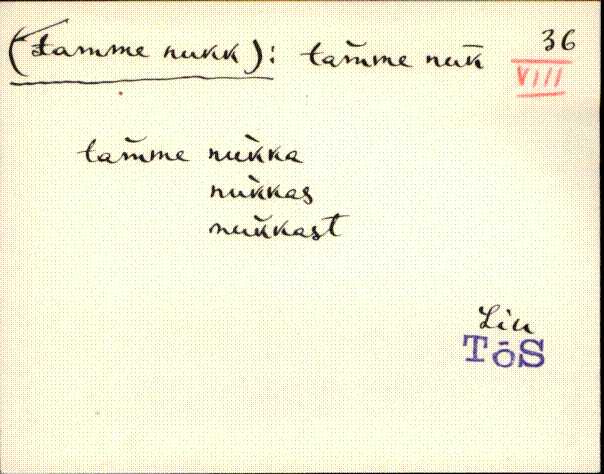 (Tamme nukk): tam̆me nuk̆ 36
VIII
tam̆me nùkka
nùkkas
nuk̆kast
Lin
TõS